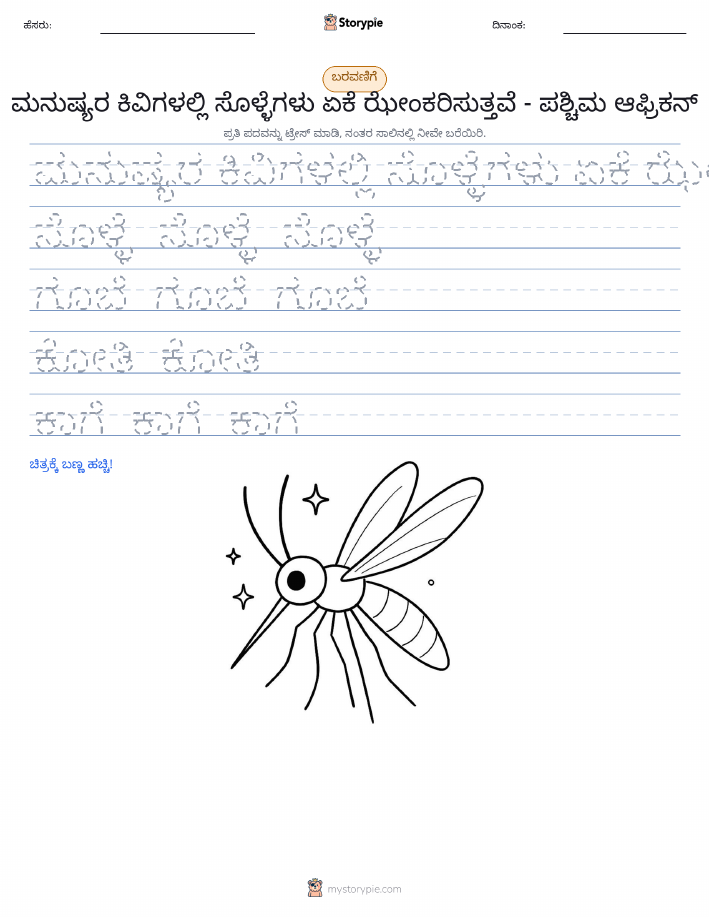 ಹೆಸರು: Storypie ದಿನಾಂಕ:
ಬರವಣಿಗೆ
ಮನುಷ್ಯರ ಕಿವಿಗಳಲ್ಲಿ ಸೊಳ್ಳೆಗಳು ಏಕೆ ಝೇಂಕರಿಸುತ್ತವೆ - ಪಶ್ಚಿಮ ಆಫ್ರಿಕನ್
ಪ್ರತಿ ಪದವನ್ನು ಟ್ರೇಸ್ ಮಾಡಿ, ನಂತರ ಸಾಲಿನಲ್ಲಿ ನೀವೇ ಬರೆಯಿರಿ.
ಮನುಷ್ಯರ ಕಿವಿಗಳಲ್ಲಿ ಸೊಳ್ಳೆಗಳು ಏಕೆ
ಸೊಳ್ಳೆ ಸೊಳ್ಳೆ ಸೊಳ್ಳೆ
ಗೂಬೆ ಗೂಬೆ ಗೂಬೆ
ಕೋತಿ ಕೋತಿ
ಕಾಗೆ ಕಾಗೆ ಕಾಗೆ
ಚಿತ್ರಕ್ಕೆ ಬಣ್ಣ ಹಚ್ಚಿ!
mystorypie.com